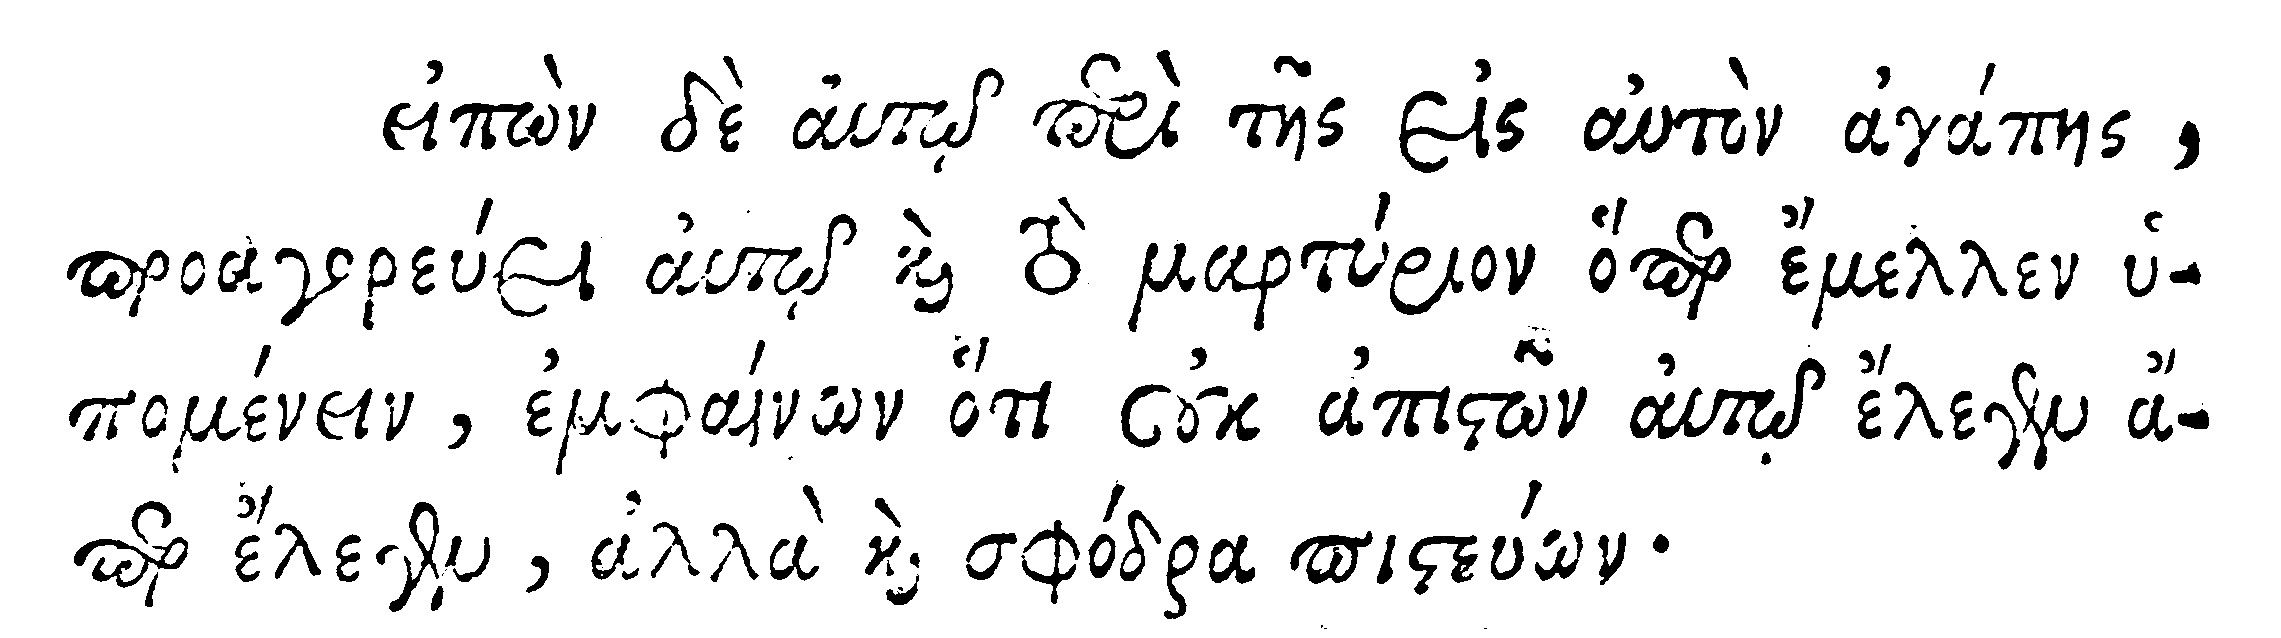 εἰπὼν δὲ αὐτῷ περὶ τῆς εἰς αὐτὸν ἀγάπης,
προαγορεύει αὐτῷ καὶ τὸ μαρτύριον ὅπερ ἔμελλεν ὑ-
πομένειν, ἐμφαίνων ὅτι οὐκ ἀπιστῶν αὐτῷ ἔλεγεν ἅ-
περ ἔλεγεν, ἀλλὰ καὶ σφόδρα πιστεύων.